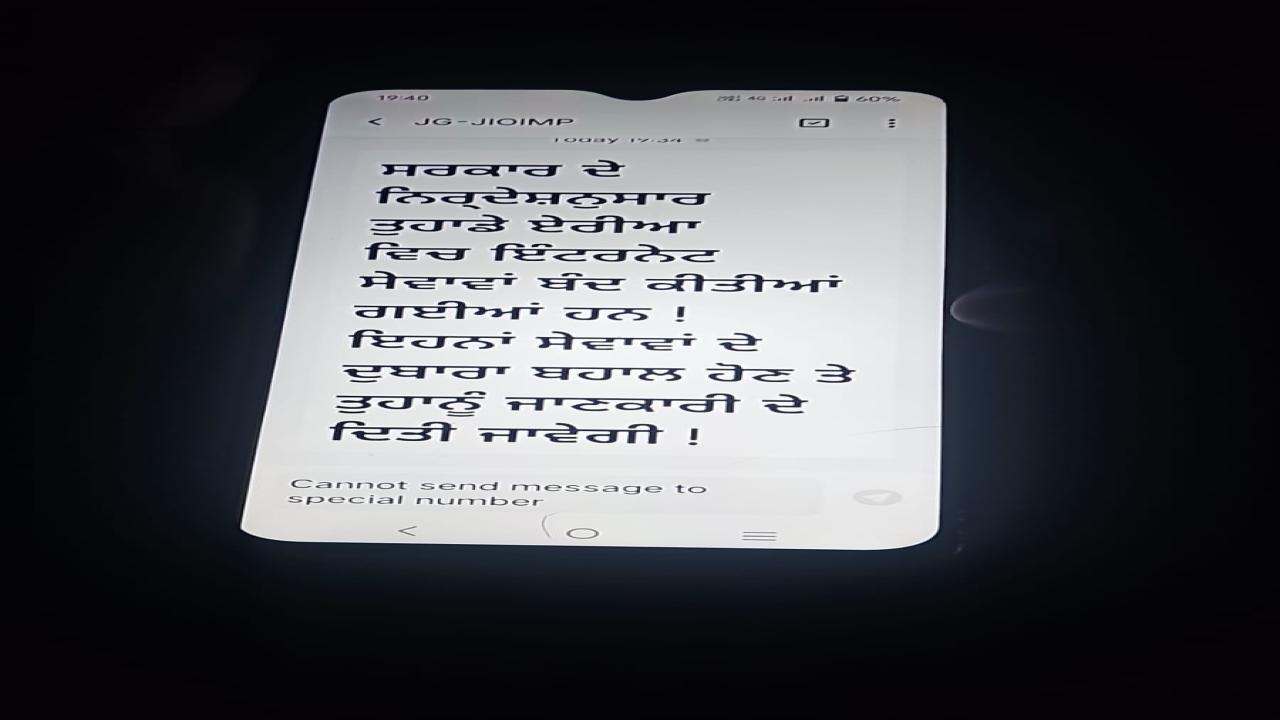 19:40 4G 60%
JG-JIOIMP
Today 19:34
ਸਰਕਾਰ ਦੇ
ਨਿਰ੍ਦੇਸ਼ਨੁਸਾਰ
ਤੁਹਾਡੇ ਏਰੀਆ
ਵਿਚ ਇੰਟਰਨੇਟ
ਸੇਵਾਵਾਂ ਬੰਦ ਕੀਤੀਆਂ
ਗਈਆਂ ਹਨ !
ਇਹਨਾਂ ਸੇਵਾਵਾਂ ਦੇ
ਦੁਬਾਰਾ ਬਹਾਲ ਹੋਣ ਤੇ
ਤੁਹਾਨੂੰ ਜਾਣਕਾਰੀ ਦੇ
ਦਿਤੀ ਜਾਵੇਗੀ !
Cannot send message to
special number